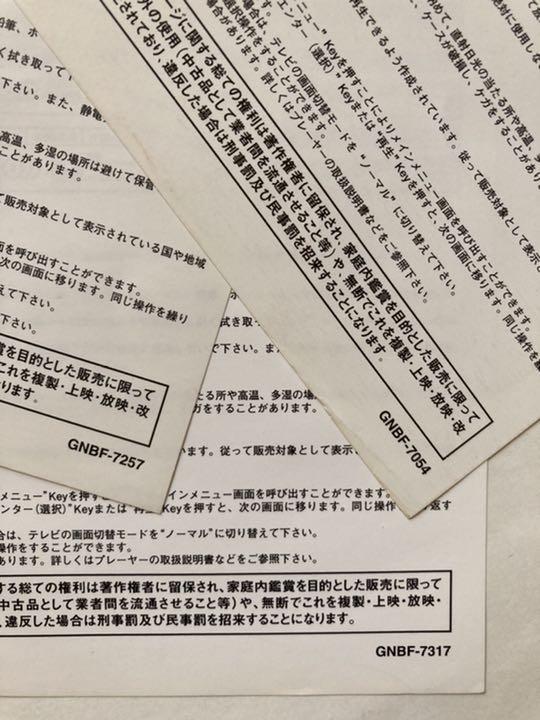 鉛筆、ボ
く拭き取って
さい。また、静電
高温、多湿の場所は避けて保管
ことがあります。
て販売対象として表示されている国や地域
面を呼び出すことができます。
次の画面に移ります。同じ操作を繰り
えて下さい。
下さい。
賞を目的とした販売に限って
これを複製・上映・放映・改
ります。
GNBF-7257
絶対に使用しな
め、直射日光の当たる所や高温、多
ケースが破損し、ケガをすることがあ
再生できるよう作成されています。従って販売対象として表示
ニュー”Keyを押すことによりメインメニュー画面を呼び出すことができます。
エンター(選択)”Keyまたは“再生”Keyを押すと、次の画面に移ります。同じ操作を繰
場合は、テレビの画面切替モードを“ノーマル”に切り替えて下さい。
選択操作をすることができます。
ります。詳しくはプレーヤーの取扱説明書などをご参照下さい。
ージに関する総ての権利は著作権者に留保され、家庭内鑑賞を目的とした販売に限って
外の使用(中古品として業者間を流通させること等)や、無断でこれを複製・上映・放映・改
されており、違反した場合は刑事罰及び民事罰を招来することになります。
GNBF-7054
拭き取っ
で下さい。ま
たる所や高温、多湿の場
ガをすることがあります。
います。従って販売対象として表示
メニュー”Keyを押す
インメニュー画面を呼び出すことができます。
ンター(選択)”Keyまたは“再生”Keyを押すと、次の画面に移ります。同じ操作を繰り返す
合は、テレビの画面切替モードを“ノーマル”に切り替えて下さい。
操作をすることができます。
ます。詳しくはプレーヤーの取扱説明書などをご参照下さい。
する総ての権利は著作権者に留保され、家庭内鑑賞を目的とした販売に限って
中古品として業者間を流通させること等)や、無断でこれを複製・上映・放映・
、違反した場合は刑事罰及び民事罰を招来することになります。
GNBF-7317